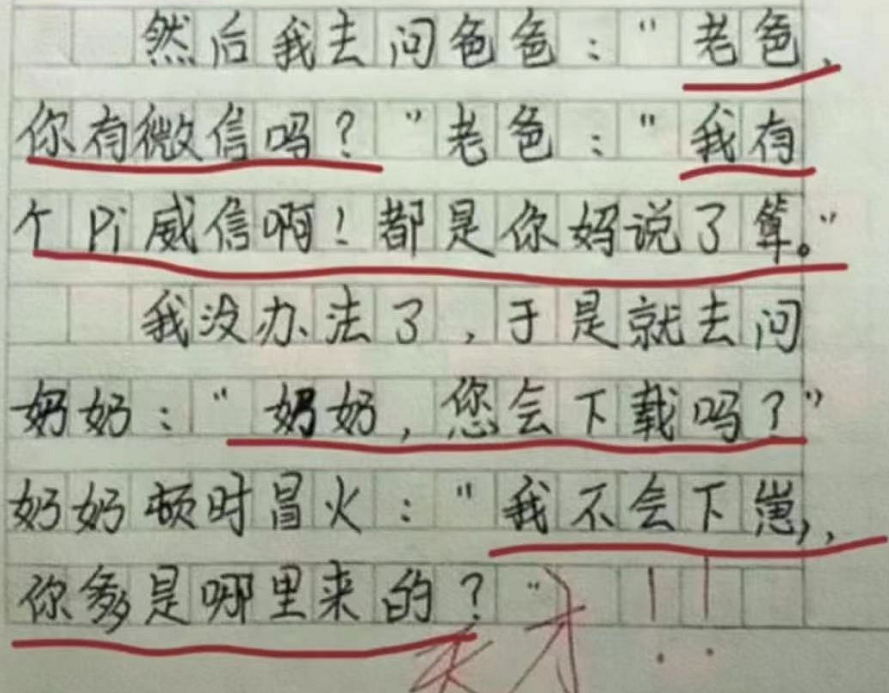 然后我去问爸爸："老爸，
你有微信吗？"老爸："我有
个Pi威信啊！都是你妈说了算。"
我没办法了，于是就去问
奶奶："奶奶，您会下载吗？"
奶奶顿时冒火："我不会下崽，
你爹是哪里来的？"
天才！！